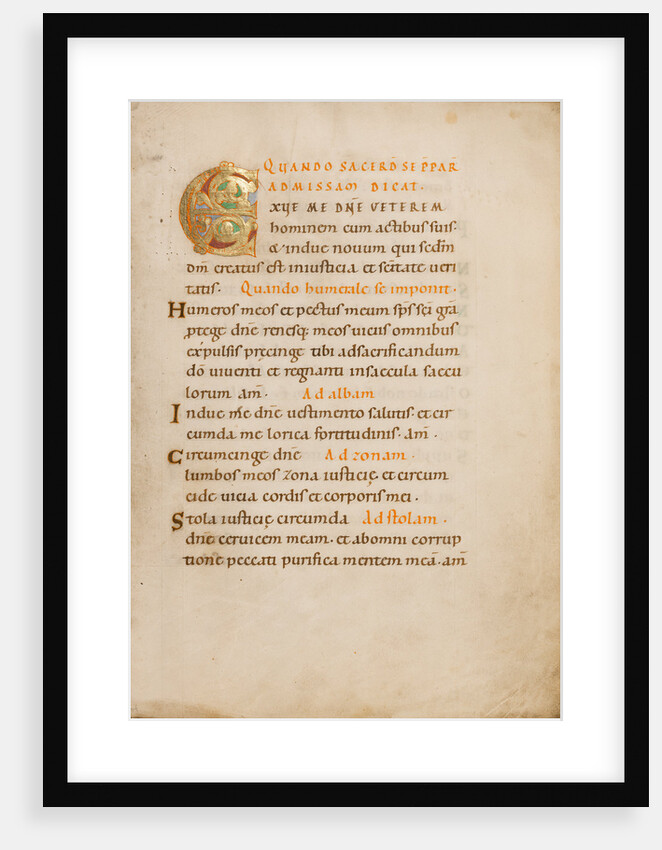 QUANDO SACERD̄ SE P̄PAR̄
AD MISSAM DICAT·
EXUE ME DN̄E VETEREM
hominem cum actibus suis·
& indue novum qui sedm̄
dm̄ creatus est iniusticia et sc̄itate veri
tatis· Quando humerale se imponit·
Humeros meos et pectus meum sp̄s sc̄i gr̄a
ꝓtege dn̄e renesq; meos viciis omnibus
expulsis precinge tibi adsacrificandum
dō viventi et regnanti insaecula saecu
lorum am̄· Ad albam
Indue me dn̄e vestimento salutis· et cir
cumda me lorica fortitudinis· am̄·
Circumcinge dn̄e Ad zonam·
lumbos meos zona iusticię et circum
cide vicia cordis et corporis mei·
Stola iusticię circumda Ad stolam·
dn̄e cervicem meam· et abomni corrup
tione peccati purifica mentem meā· am̄